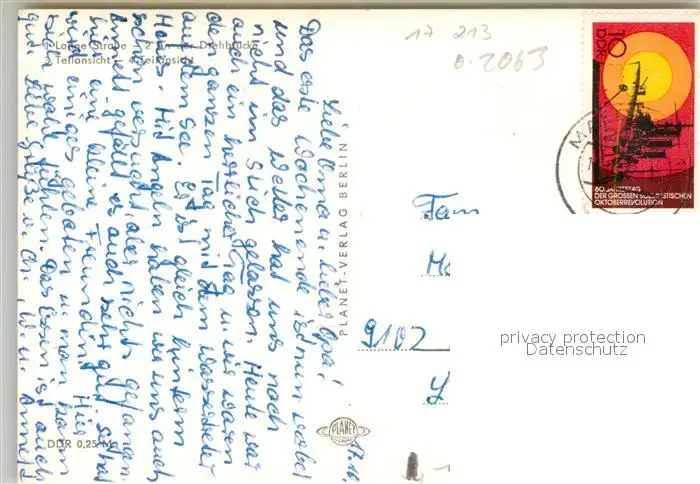 1 Lange Straße – 2 An der Drehbrücke
Teilansicht – 4 Teilansicht
Liebe Oma u. lieber Opa!
Das erste Wochenende ist nun vorbei
und das Wetter hat uns noch
nicht im Stich gelassen. Heute war
auch ein herrlicher Tag u. wir waren
den ganzen Tag mit dem Wassertreter
auf dem See. Er ist gleich hinterm
Haus. Mit Angeln haben wir uns auch
schon versucht aber nichts gefangen.
gefällt es auch sehr gut, sie hat
eine kleine Freundin. Hier
wird einiges geboten u. man kann
sich wohl fühlen. Das Essen ist auch
gut. Liebe Grüße
DDR 0,25 M
PLANET-VERLAG BERLIN
PLANET
17 213
0-2063
DDR
10
60. JAHRESTAG
DER GROSSEN SOZIALISTISCHEN
OKTOBERREVOLUTION
MA
Fam
9102
privacy protection
Datenschutz